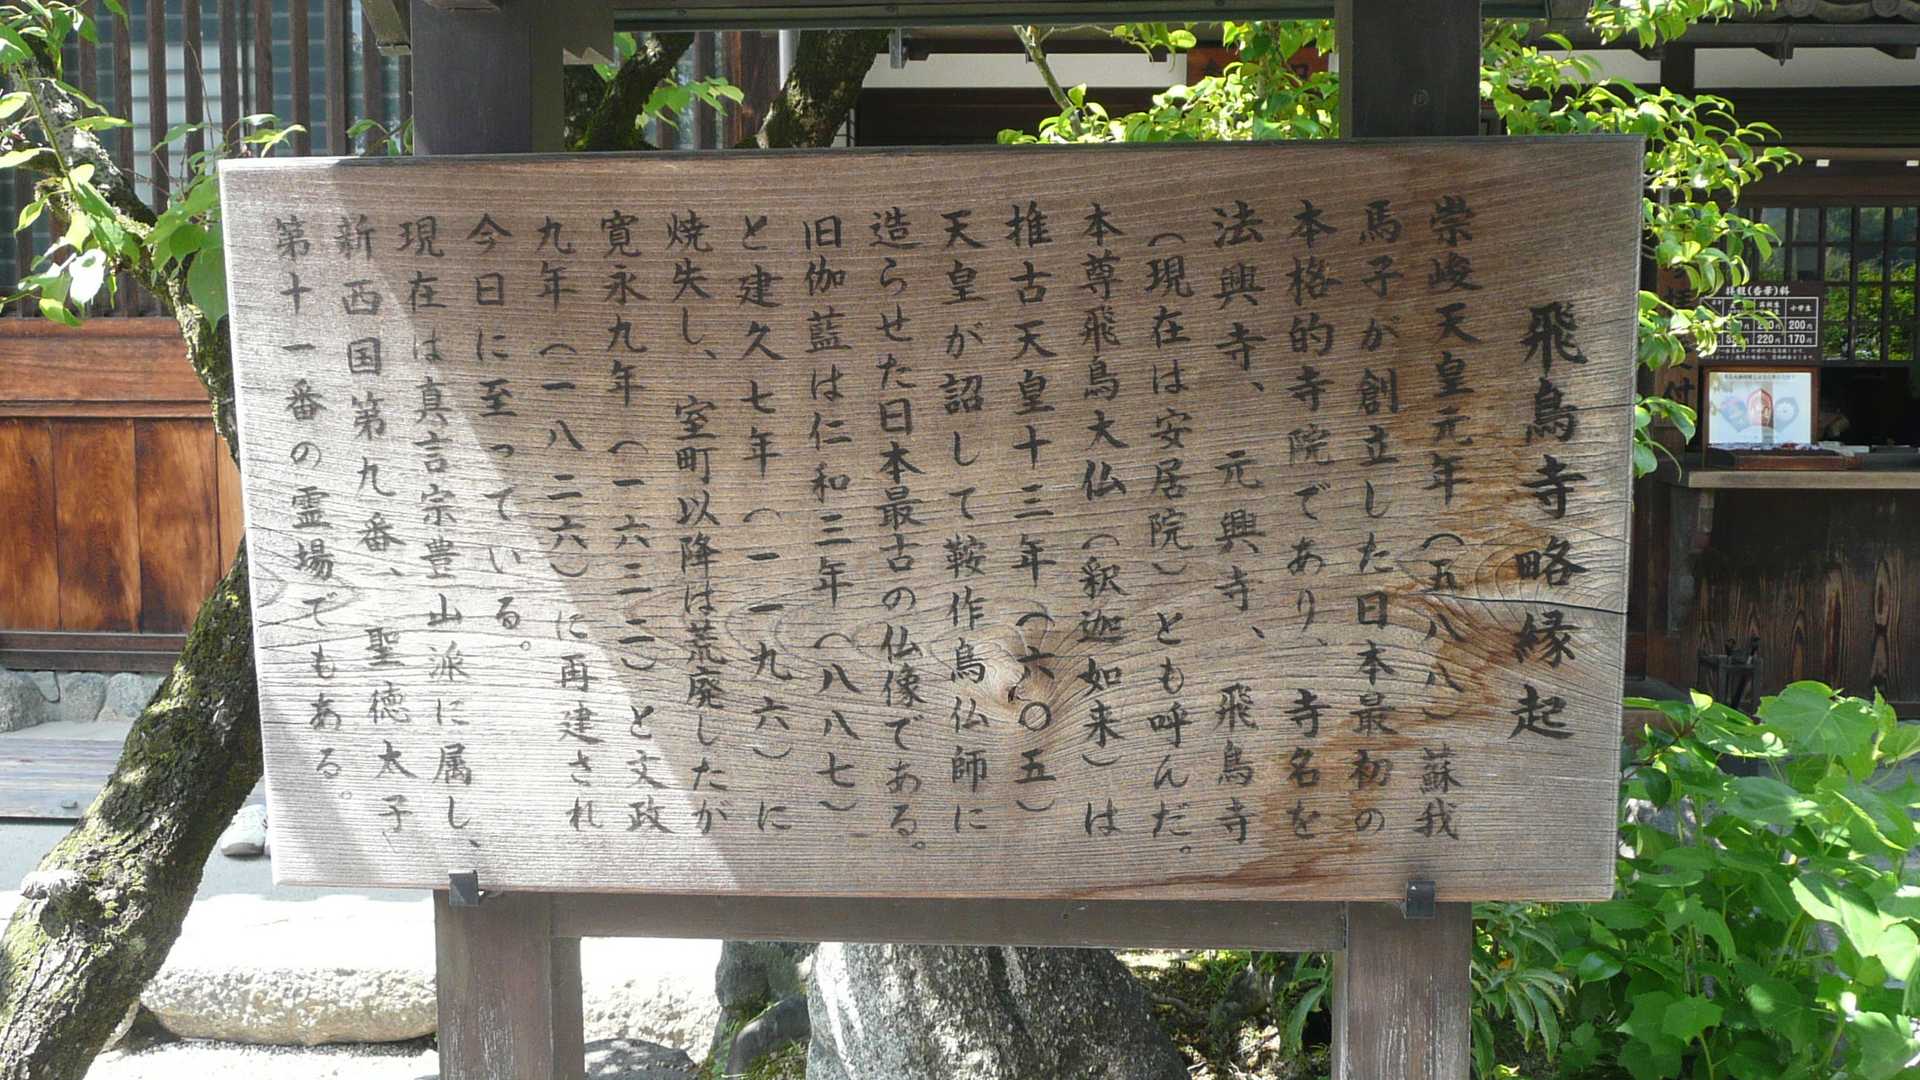 飛鳥寺略縁起
崇峻天皇元年（五八八）蘇我
馬子が創立した日本最初の
本格的寺院であり、寺名を
法興寺、元興寺、飛鳥寺
（現在は安居院）とも呼んだ。
本尊飛鳥大仏（釈迦如来）は
推古天皇十三年（六〇五）
天皇が詔して鞍作鳥仏師に
造らせた日本最古の仏像である。
旧伽藍は仁和三年（八八七）
と建久七年（一一九六）に
焼失し、室町以降は荒廃したが
寛永九年（一六三二）と文政
九年（一八二六）に再建され
今日に至っている。
現在は真言宗豊山派に属し、
新西国第九番、聖徳太子
第十一番の霊場でもある。
拝観(香華)料
小中学生
200円
220円
170円